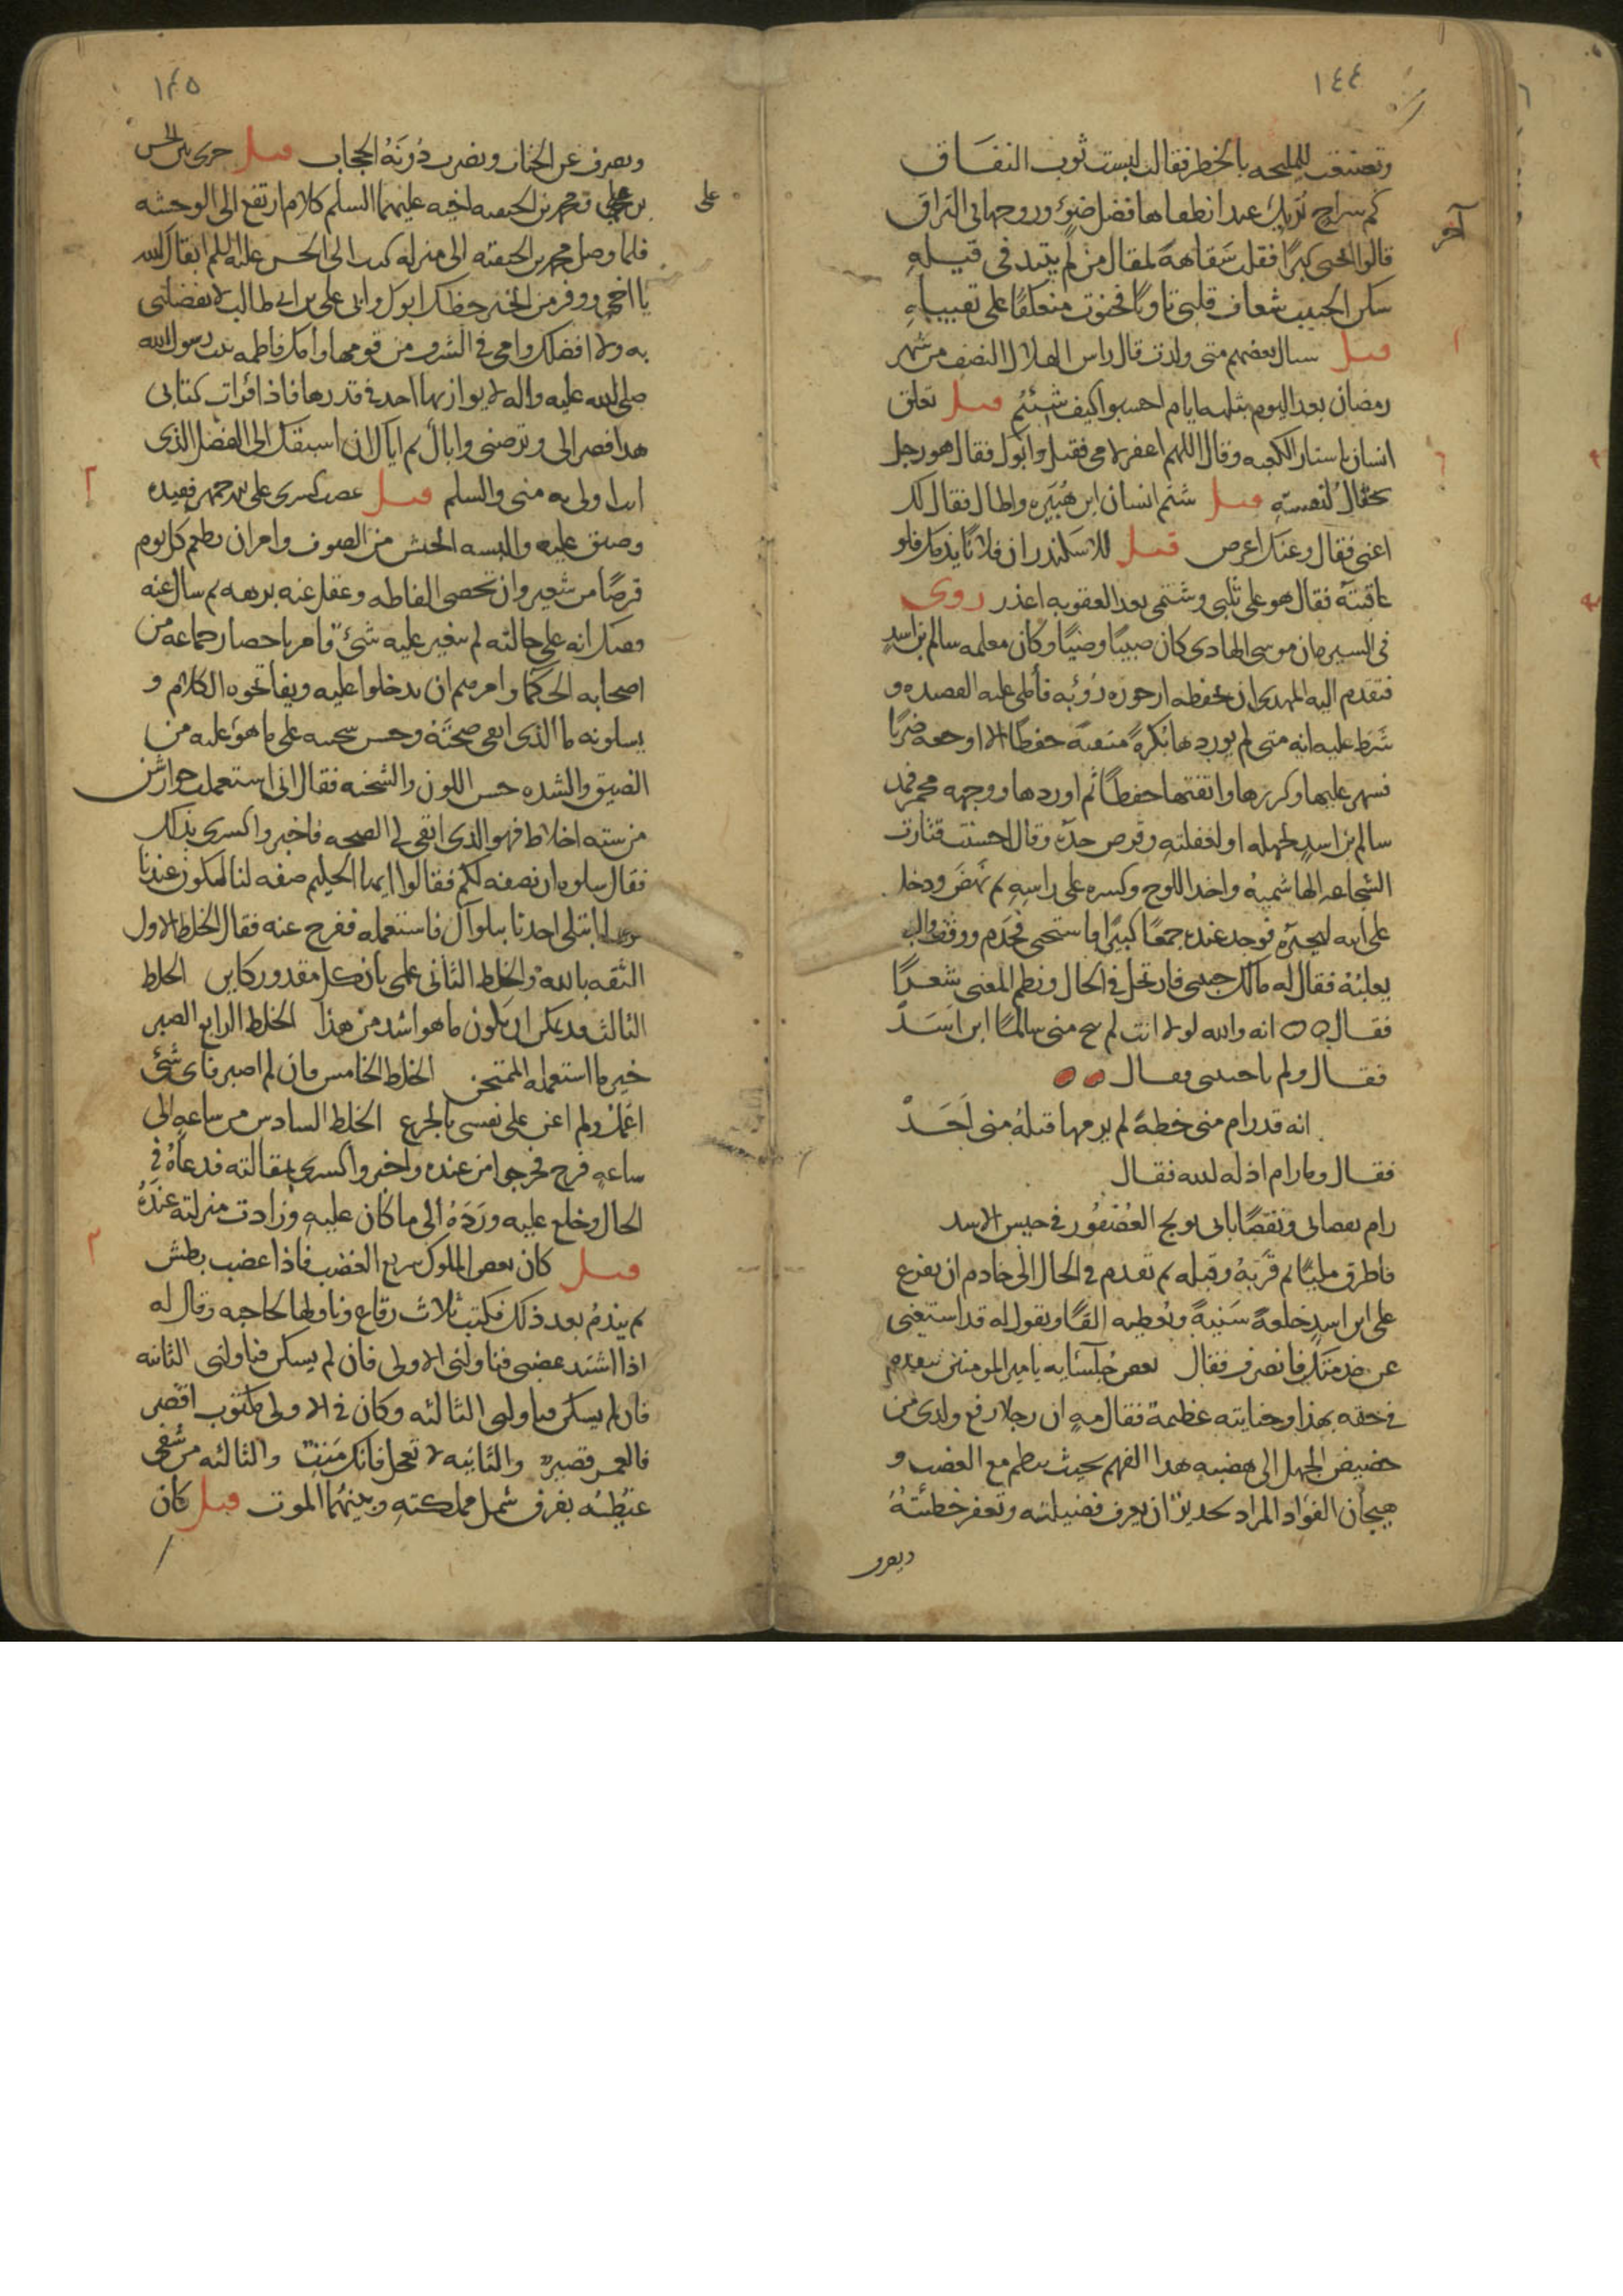 ١٤٤
وتعشقت للمليحه بالخطر فقالت لبست ثوب النفاق
كم سراج تريك عند انطفاها فضل ضوء وروحها في التراق
آخر
قالوا انحنى كبرًا فقلت سفاهة لمقال من لم يتئد في قيله
سكن الحبيب شغاف قلبي ثاويًا فحنوت منعكفًا على تقبيله
قيل سال بعضهم متى ولدت قال راس الهلال النصف من شهر
رمضان بعد اليوم بثلثه ايام احسبوا كيف شئتم قيل تعلق
انسان باستار الكعبه وقال اللهم اغفر لامي فقيل وابوك فقال هو رجل
يحتال لنفسه قيل شتم انسان ابن هبيره واطال فقال لك
اعني فقال وعنك اعرض قيل للاسكندر ان فلانًا يذمك فلو
عاقبته فقال هو على ثلبي وشتمي بعد العقوبه اعذر روي
في السير ان موسى الهادي كان صبيًا وضيًا وكان معلمه سالم بن اسد
فتقدم اليه المهدي ان يحفظه ارجوزه رؤبه فأملى عليه القصيده و
شرط عليه انه متى لم يوردها بكرة متقنة حفظًا الا اوجعه ضربًا
فسهر عليها وكررها واتقنها حفظًا ثم اوردها ووجهه محمر فمد
سالم بن اسد لجهله او لغفلته وقرص خده وقال احسنت فثارت
الشجاعه الهاشميه واخذ اللوح وكسره على راسه ثم نهض ودخل
على ابيه ليخبره فوجد عنده جمعًا كبيرًا فاستحى فخدم ووقف وابى
يعلمه فقال له مالك حبيبي فارتجل في الحال ونظم المعنى شعرًا
فقال انه والله لولا انت لم ينج مني سالمًا ابن اسد
فقال ولم يا حبيبي فقال
انه قد رام مني خطة لم يرمها قبله مني احد
فقال وما رام اذله الله فقال
رام بعصاني ونقصًا بابي يولج العصفور في خيس الاسد
فاطرق مليًا ثم قربه وقبله ثم تقدم في الحال الى خادم ان يفزع
على ابن اسد خلعة سنية ويعطيه الفًا ويقول له قد استغنى
عن خدمتك فانصرف فقال بعض جلسائه يا امير المومنين
في حقه بهذا وجنايته عظيمة فقال مه ان رجلا رفع ولدي من
حضيض الجهل الى هضبة هذا الفهم بحيث ينظم مع الغضب و
هيجان الفؤاد المراد لجدير ان يعرف فضيلته وتغفر خطئته
ويصرف
١٤٥
ويصرف عن الختان ويضرب دونه الحجاب قيل جرى بين الحسن
بن علي ومحمد بن الحنفيه اخيه عليهما السلم كلام ارتفع الى الوحشه
على
فلما وصل محمد بن الحنفيه الى منزله كتب الى الحسن عليه السلم ابقاك الله
يا اخي ووفر من الخير حظك ابوك وابي علي بن ابي طالب لا تفضلني
به ولا افضلك وامي في الشرف من قومها وامك فاطمه بنت رسول الله
صلى الله عليه واله لا يوازيها احد في قدرها فاذا قرات كتابي
هذا فصر الى وترضني واياك ثم اياك ان اسبقك الى الفضل الذي
انت اولى به مني والسلم قيل غضب كسرى على بزرجمهر فقيده
وضيق عليه والبسه الخشن من الصوف وامر ان يطعم كل يوم
قرصًا من شعير وان تحصى الفاظه وغفل عنه برهه ثم سال عنه
فقيل انه على حالته لم يتغير عليه شئ فامر باحضار جماعه من
اصحابه الحكما وامرهم ان يدخلوا عليه ويفاتحوه الكلام و
يسلونه ما الذي ابقى صحته وحسن سحنته على ما هو عليه من
الضيق والشده حسن اللون والسخنه فقال اني استعملت جوارشن
من سته اخلاط فهو الذي ابقى لي الصحه فاخبروا كسرى بذلك
فقال سلوه ان يصفه لكم فقالوا ايها الحكيم صفه لنا ليكون عندنا
متى ابتلى احدنا ببلواك فاستعمله ففرج عنه فقال الخلط الاول
الثقه بالله والخلط الثاني علمي بان كل مقدور كاين الخلط
الثالث قد يمكن ان يكون ما هو اشد من هذا الخلط الرابع الصبر
خير ما استعمله الممتحن الخلط الخامس فان لم اصبر فاي شئ
اعمل ولم اعن على نفسي بالجزع الخلط السادس من ساعه الى
ساعه فرج فخرجوا من عنده واخبروا كسرى بمقالته فدعاه في
الحال وخلع عليه ورده الى ما كان عليه وزادت منزلته عنده
قيل كان بعض الملوك سريع الغضب فاذا غضب بطش
ثم يندم بعد ذلك فكتب ثلاث رقاع وناولها لحاجبه وقال له
اذا اشتد غضبي فناولني الاولى فان لم يسكن فناولني الثانيه
فان لم يسكن فناولني الثالثه وكان في الاولى مكتوب اقصر
فالعمر قصير والثانيه لا تعجل فانك ميت والثالثه من شفى
غيظه يفرق شمل مملكته وبينهما الموت قيل كان